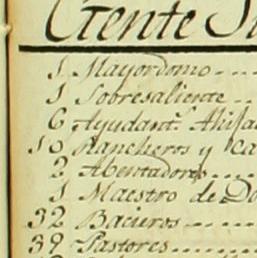 Gente
1 Mayordomo ----
1 Sobresaliente --
6 Ayudant.
10 Rancheros y
2 Abentadores
1 Maestro de
32 Bacieros ------
39 Pastores ------